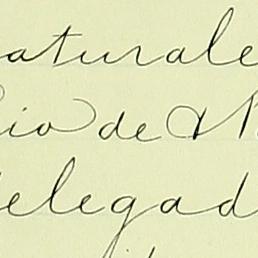 aturale
io de
elegad